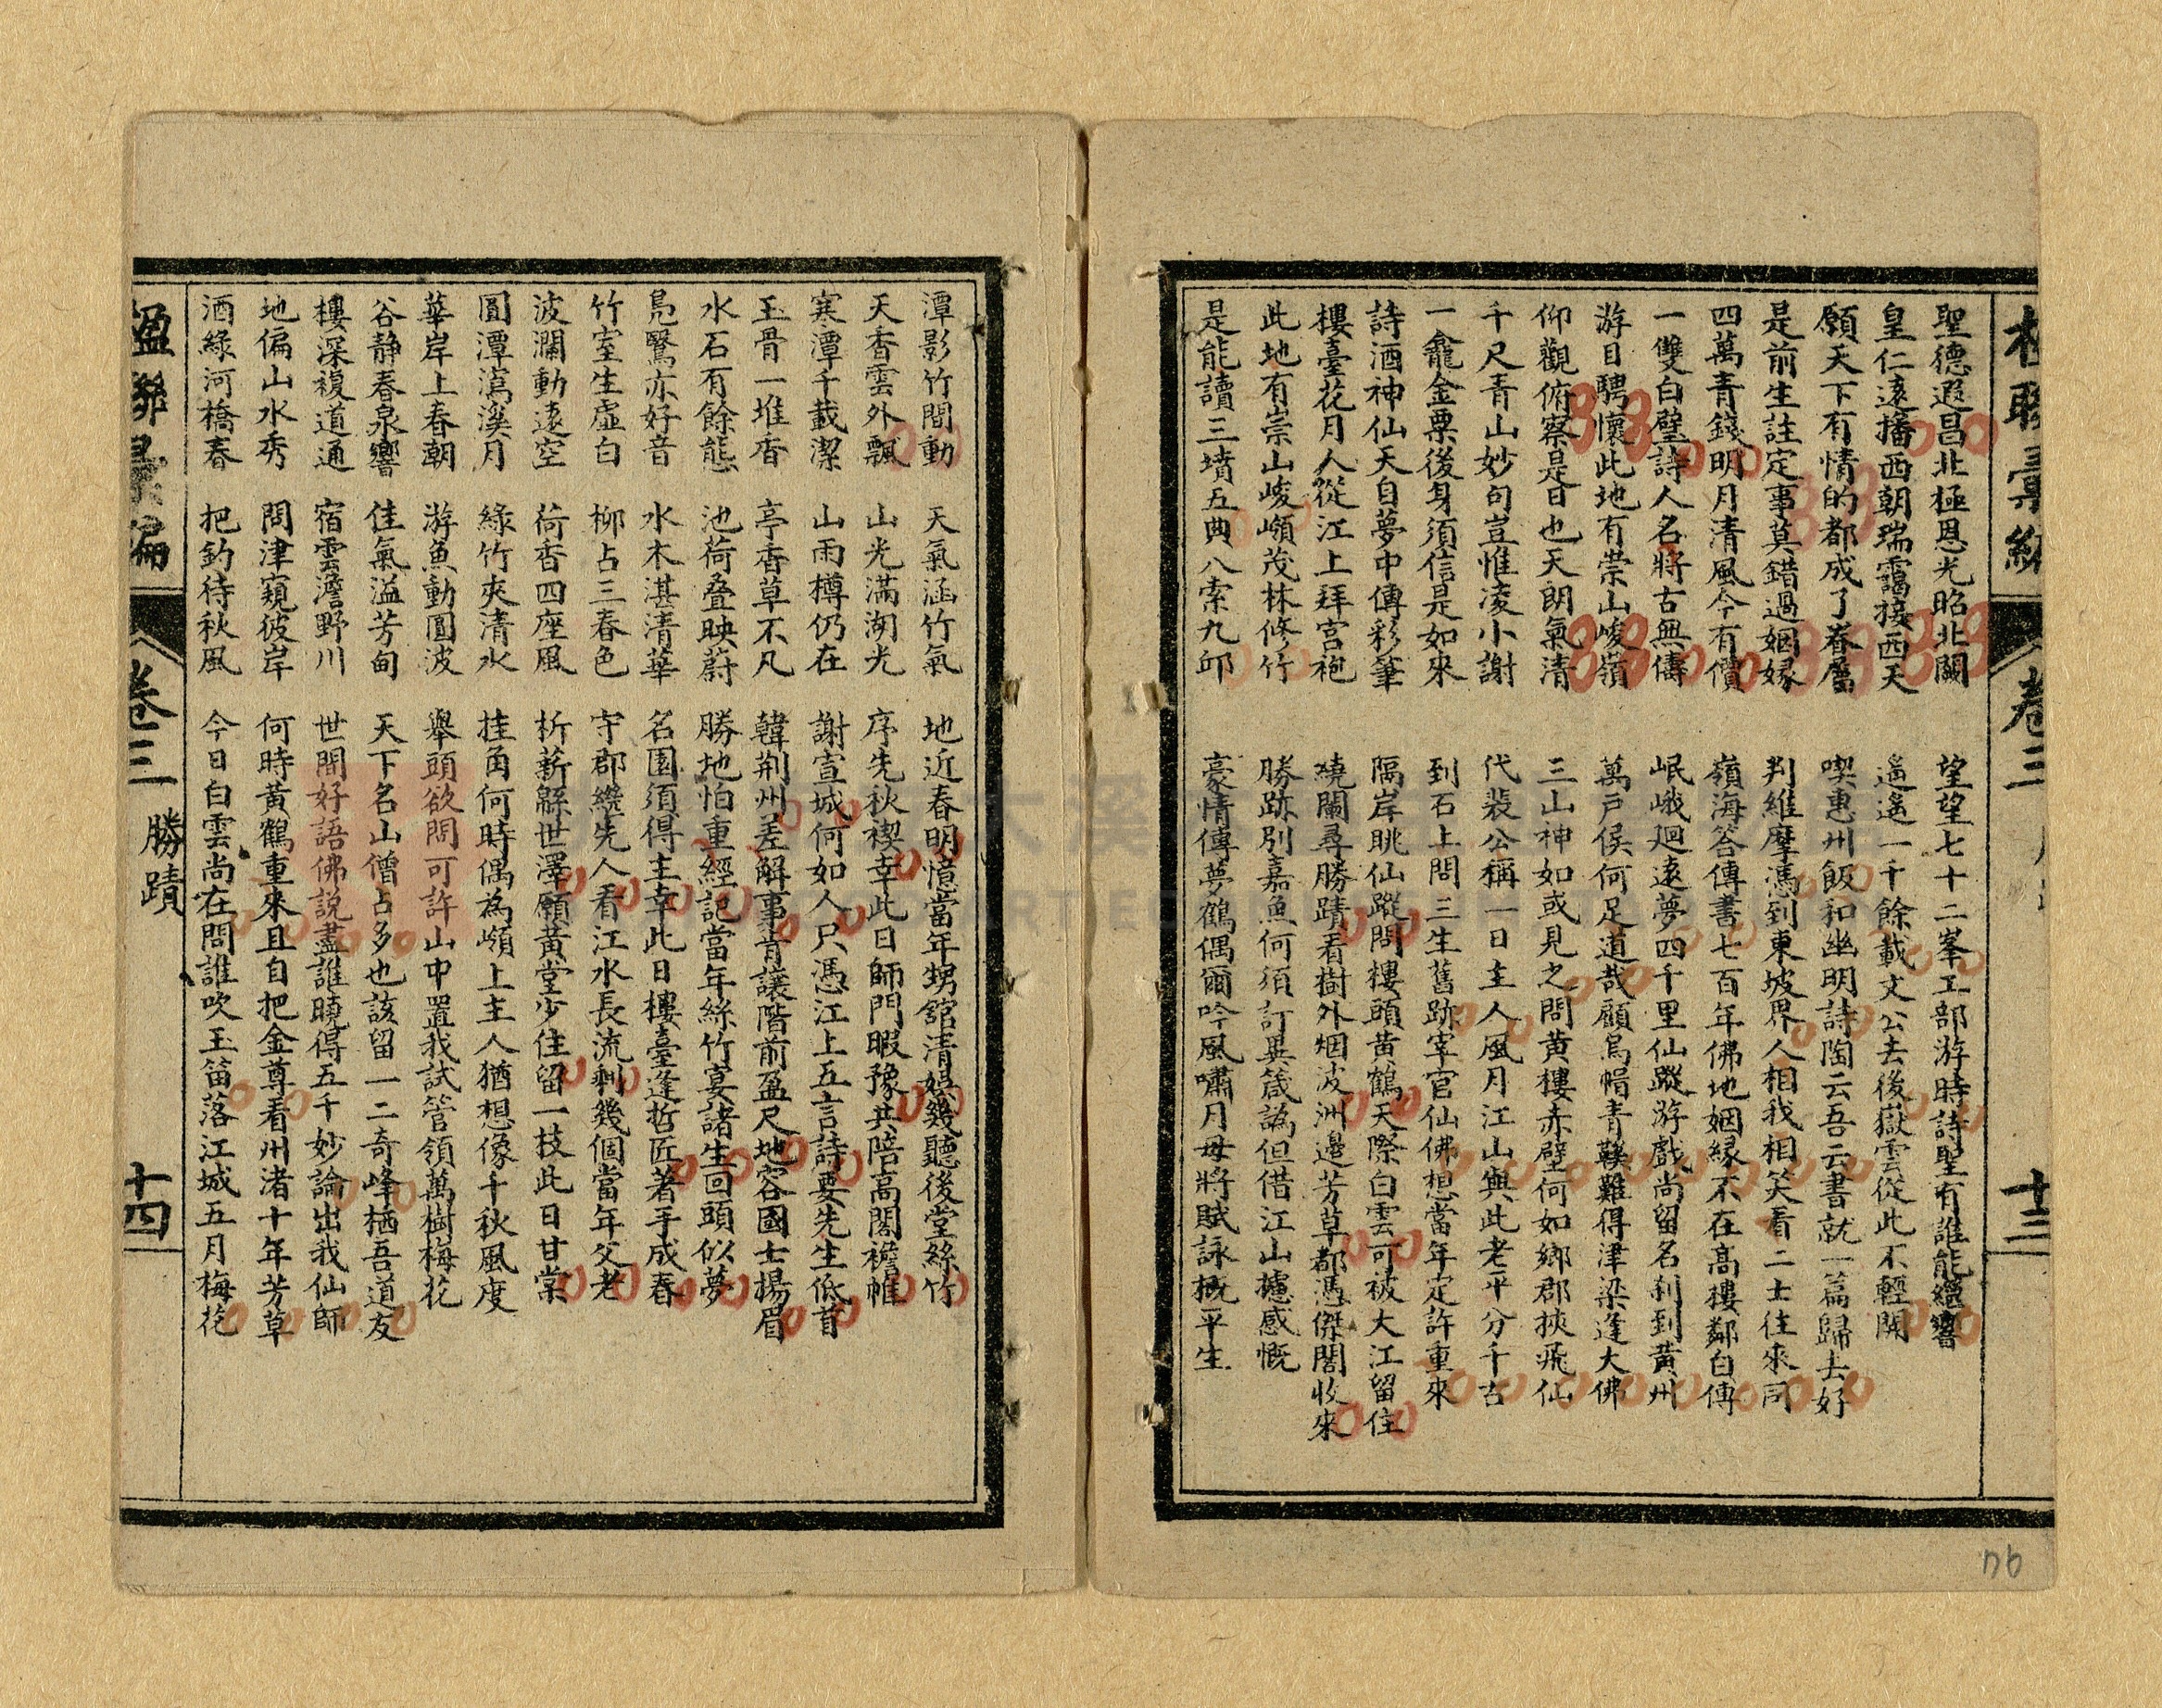 聖德遐昌北極恩光昭北闕
望望七十二峯工部游時詩聖有誰能繼響
皇仁遠播西朝瑞靄接西天
遙遙一千餘載文公去後嶽雲從此不輕開
願天下有情的都成了眷屬
喫惠州飯和幽明詩陶云吾云書就一篇歸去好
是前生註定事莫錯過姻緣
判維摩憑到東坡界人相我相笑看二士往來同
四萬青錢明月清風今有價
嶺海答傳書七百年佛地姻緣不在高樓鄰白傳
一雙白璧詩人名將古無儔
岷峨廻遠夢四千里仙蹤游戲尚留名刹到黃州
游目騁懷此地有崇山峻嶺
萬戶侯何足道哉顧烏帽青鞵難得津梁逢大佛
仰觀俯察是日也天朗氣清
三山神如或見之問黃樓赤壁何如鄉郡挾飛仙
千尺青山妙句豈惟凌小謝
代裴公稱一日主人風月江山與此老平分千古
一龕金粟後身須信是如來
到石上問三生舊跡宰官仙佛想當年定許重來
詩酒神仙天自夢中傳彩筆
隔岸眺仙蹤問樓頭黃鶴天際白雲可被大江留住
樓臺花月人從江上拜宮袍
繞闌尋勝蹟看樹外烟波洲邊芳草都憑傑閣收來
此地有崇山峻嶺茂林修竹
勝跡別嘉魚何須訂異箴譌但借江山攄感慨
是能讀三墳五典八索九邱
豪情傳夢鶴偶爾吟風嘯月毋將賦詠概平生
卷三
十三
潭影竹間動
天氣涵竹氣
地近春明憶當年甥舘清娛幾聽後堂絲竹
天香雲外飄
山光滿湖光
序先秋禊幸此日師門暇豫共陪高閣襜帷
寒潭千載潔
山雨樽仍在
謝宣城何如人只憑江上五言詩要先生低首
玉骨一堆香
亭香草不凡
韓荆州差解事肯讓階前盈尺地容國士揚眉
水石有餘態
池荷叠映蔚
勝地怕重經記當年絲竹宴諸生回頭似夢
鳧鷖亦好音
水木湛清華
名園須得主幸此日樓臺逢哲匠著手成春
竹室生虛白
柳占三春色
守郡繞先人看江水長流剩幾個當年父老
波瀾動遠空
荷香四座風
析薪緜世澤願黃堂少住留一枝此日甘棠
圓潭瀉溪月
綠竹夾清水
挂角何時偶為嶺上主人猶想像千秋風度
華岸上春潮
游魚動圓波
舉頭欲問可許山中置我試管領萬樹梅花
谷静春泉響
佳氣溢芳甸
天下名山僧占多也該留一二奇峰栖吾道友
樓深複道通
宿雲澹野川
世間好語佛説盡誰曉得五千妙論出我仙師
地偏山水秀
問津窺彼岸
何時黃鶴重來且自把金尊看州渚十年芳草
酒綠河橋春
把釣待秋風
今日白雲尚在問誰吹玉笛落江城五月梅花
楹聯彙編
卷三
勝蹟
十四